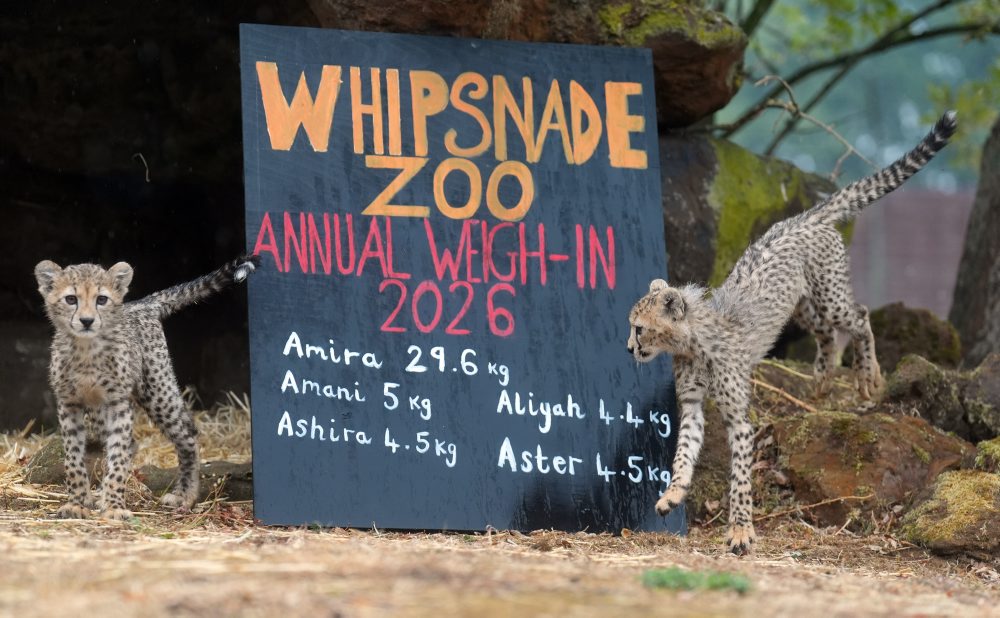 WHIPSNADE
ZOO
ANNUAL WEIGH-IN
2026
Amira 29.6 kg
Amani 5 kg
Ashira 4.5 kg
Aliyah 4.4 kg
Aster 4.5 kg